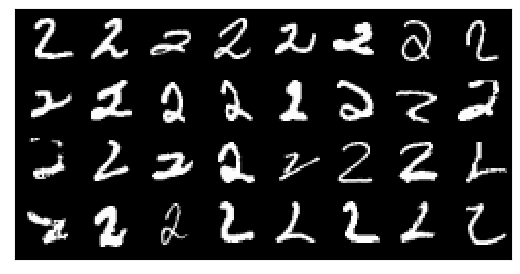 2 2 2 2 2 2 2 2
2 2 2 2 2 2 2 2
2 2 2 2 2 2 2 2
2 2 2 2 2 2 2 2